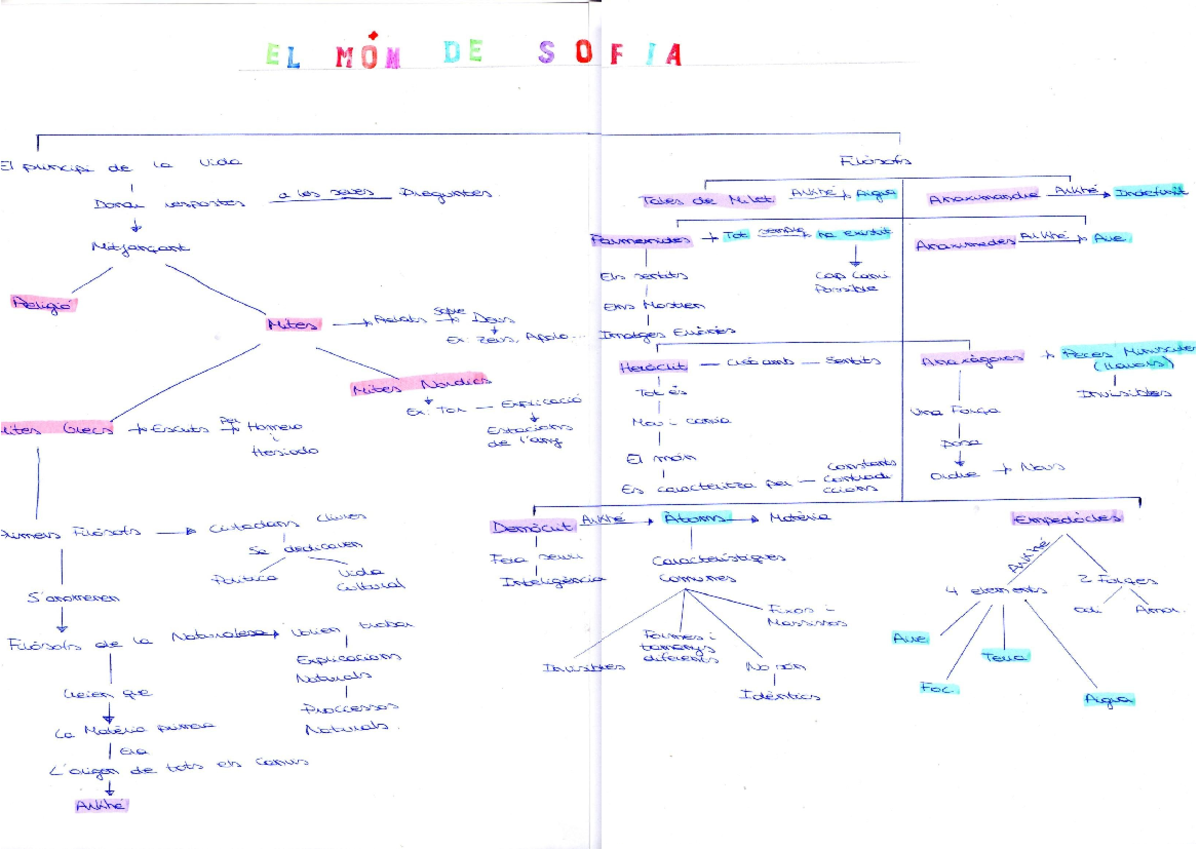 EL MÓN DE SOFIA
El principi de la vida
Donar respostes a les seves Preguntes.
Mitjançant
Religió
Mites → Relats sobre → Déus
Ex: Zeus, Apolo...
Mites Nòrdics
Ex: Tor — Explicació
Estacions
de l'any
Mites Grecs → Escrits Per → Homero
i
Hesiodo
Primers Filòsofs → Ciutadans lliures
Se dedicaven
Política
Vida
Cultural
S'anomenen
Filòsofs de la Naturalesa → Volien trobar
Explicacions
Naturals
Processos
Naturals.
Creien que
La Matèria primera
Era
L'origen de tots els canvis
Arkhé
Filòsofs
Tales de Milet Arkhé → Aigua
Anaximandre Arkhé → Indefinit
Parmenides → Tot sempre → ha existit
Cap Canvi
Possible
Els sentits
Ens Mostren
Imatges Errònies
Anaximedes Arkhé → Aire
Heràclit — Creó amb — Sentits
Tot és
Mou i canvia
El món
Es caracteritza per — Constants
Contradi
ccions
Anaxàgores → Peces Minúscules
(llavors)
Invisibles
Una Força
posa
Ordre → Nous
Demòcrit Arkhé → Àtoms → Matèria
Feia servir
Inteligència
Característiques
Comunes
Invisibles
Formes i
tamanys
diferents
No són
Idèntics
Fixos i
Massissos
Empedòcles
Arkhé
4 elements
Aire
Foc.
Terra
Aigua
2 Forces
Odi
Amor.